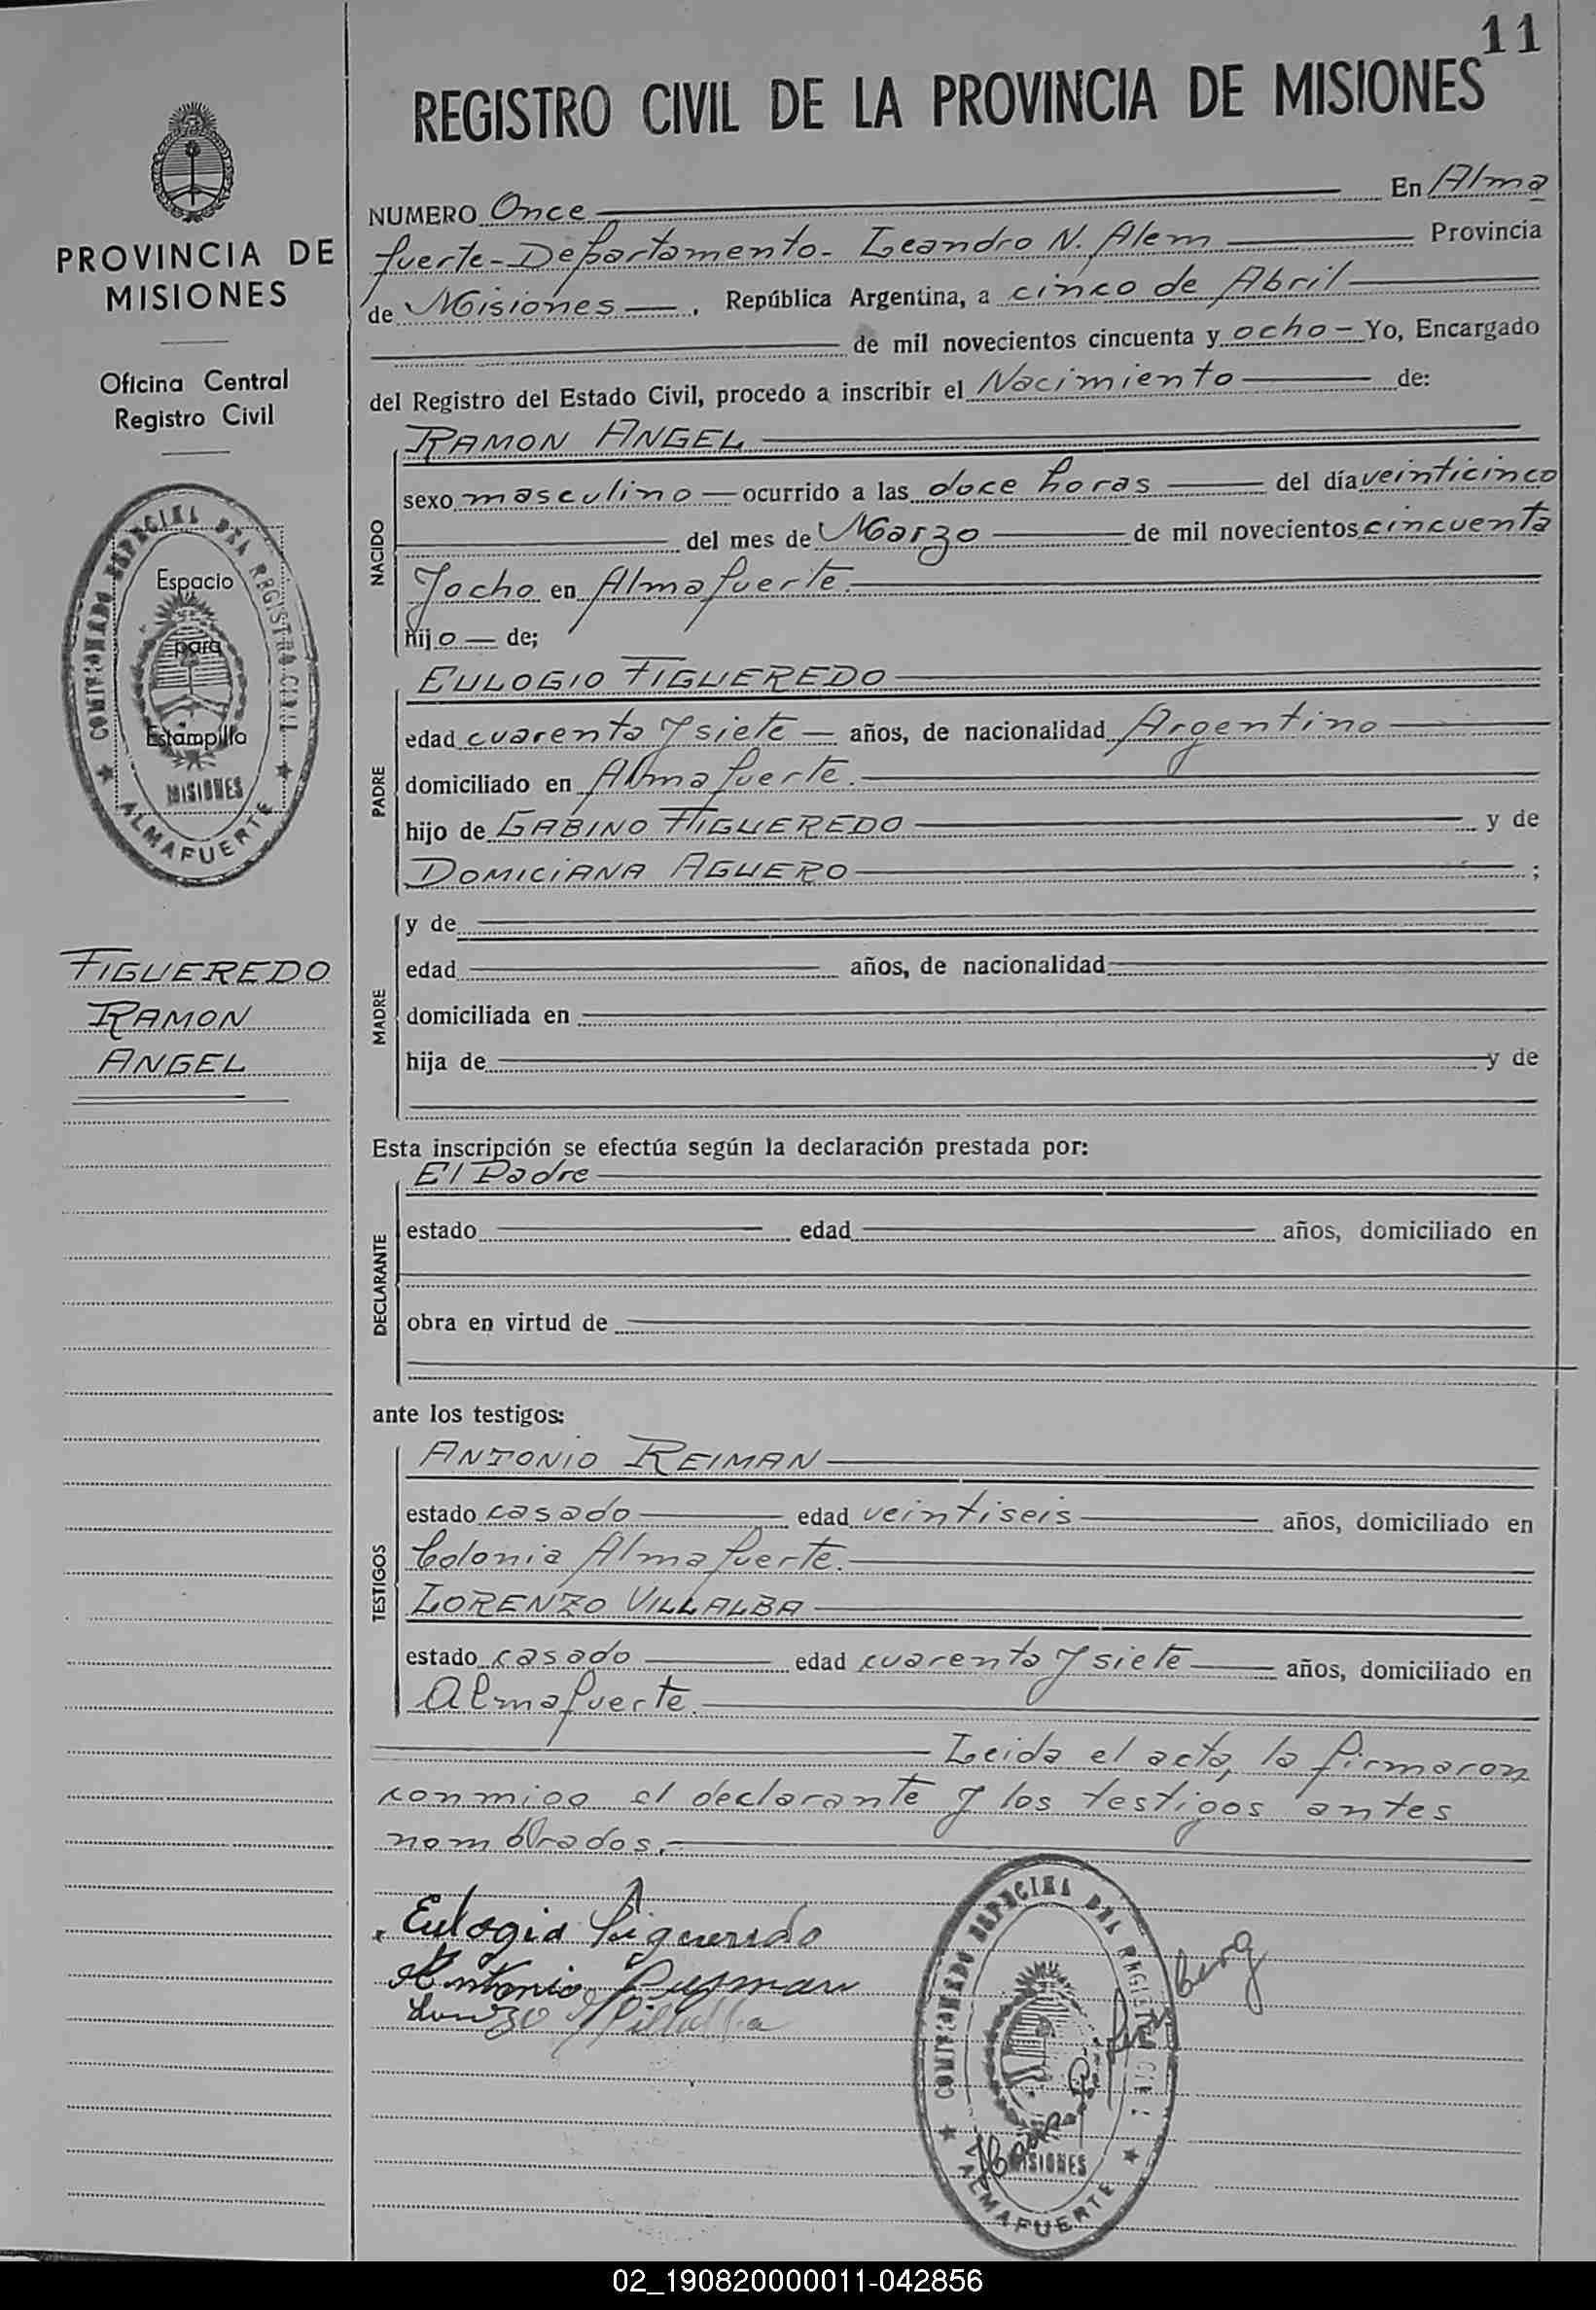 11
REGISTRO CIVIL DE LA PROVINCIA DE MISIONES
PROVINCIA DE
MISIONES
Oficina Central
Registro Civil
COMISIONADO ESPECIAL DEL REGISTRO CIVIL
Espacio
para
Estampilla
MISIONES
ALMAFUERTE
FIGUEREDO
RAMON
ANGEL
NUMERO Once En Alma
fuerte - Departamento - Leandro N. Alem Provincia
de Misiones, República Argentina, a cinco de Abril
de mil novecientos cincuenta y ocho - Yo, Encargado
del Registro del Estado Civil, procedo a inscribir el Nacimiento de:
NACIDO
RAMON ANGEL
sexo masculino ocurrido a las doce horas del día veinticinco
del mes de Marzo de mil novecientos cincuenta
y ocho en Almafuerte.
hijo de;
PADRE
EULOGIO FIGUEREDO
edad cuarenta y siete años, de nacionalidad Argentino
domiciliado en Almafuerte.
hijo de GABINO FIGUEREDO y de
DOMICIANA AGUERO ;
MADRE
y de
edad años, de nacionalidad
domiciliada en
hija de y de
Esta inscripción se efectúa según la declaración prestada por:
DECLARANTE
El Padre
estado edad años, domiciliado en
obra en virtud de
ante los testigos:
TESTIGOS
ANTONIO REIMAN
estado casado edad veintiseis años, domiciliado en
Colonia Almafuerte.
LORENZO VILLALBA
estado casado edad cuarenta y siete años, domiciliado en
Almafuerte.
Leida el acta, la firmaron
conmigo el declarante y los testigos antes
nombrados.
Eulogio Figueredo
Antonio
Lorenzo Villalba
COMISIONADO ESPECIAL DEL REGISTRO CIVIL
MISIONES
ALMAFUERTE
02_190820000011-042856